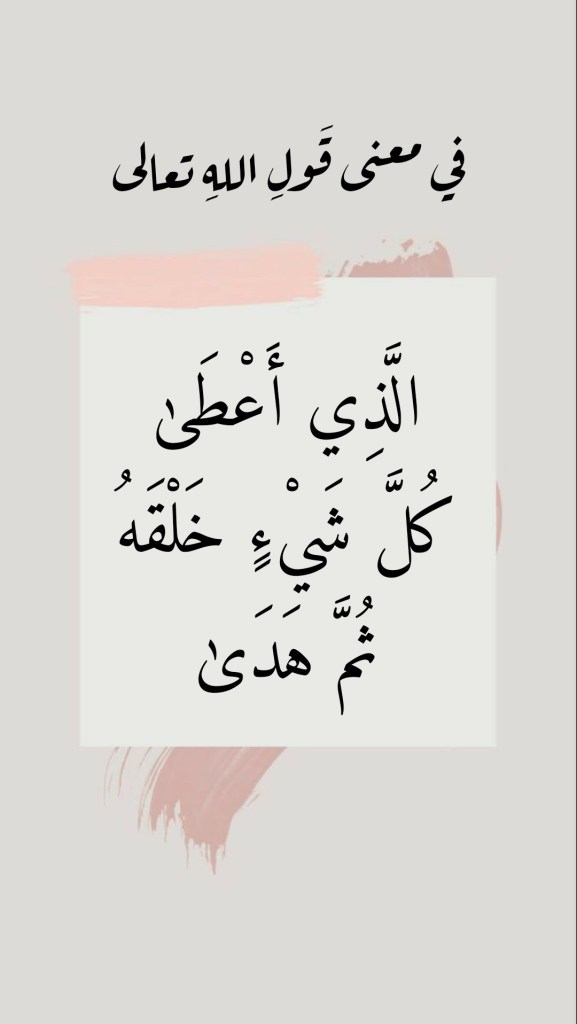 في معنى قَولِ اللهِ تعالى
الَّذِي أَعْطَىٰ
كُلَّ شَيْءٍ خَلْقَهُ
ثُمَّ هَدَىٰ